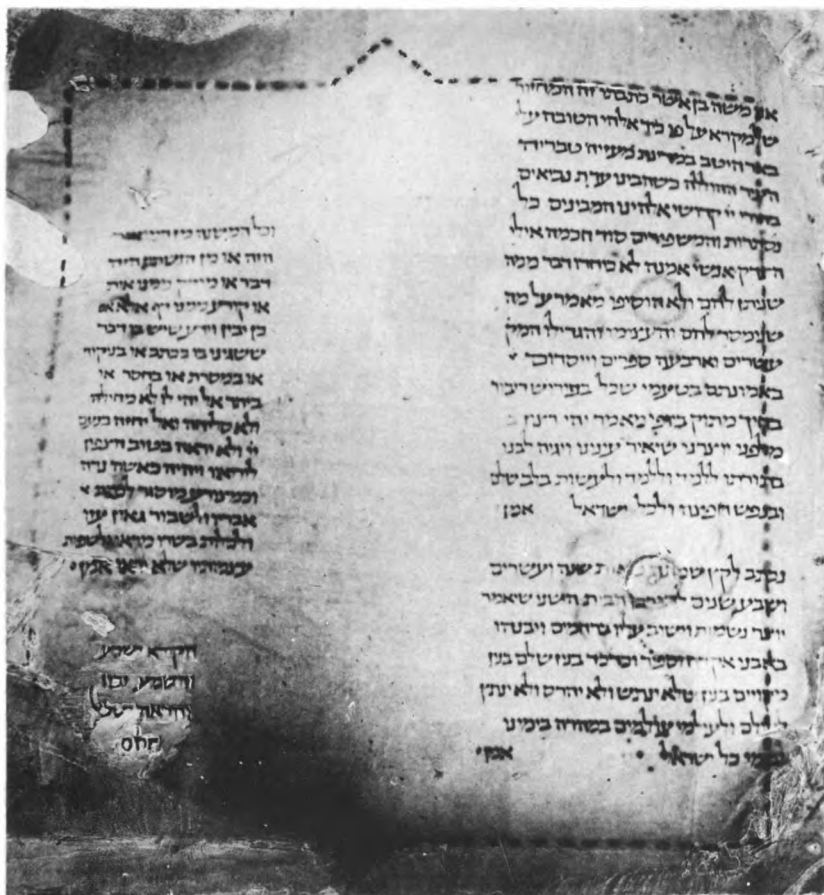 אני משה בן אשר כתבתי זה המחזור
של מקרא על פי כיד אלהי הטובה עלי
באר היטב במדינת מעזיה טבריה
העיר ההוללה כשהבינו עדת נביאים
בחורי יי קדושי אלהינו המבינים כל
נסתרות והמשפירים סוד חכמה אילי
הצדק אנשי אמנה לא כיחדו דבר ממה
שניתן להם ולא הוסיפו מאמר על מה
שנמסר להם והעצימו והגדילו המק
עשרים וארבעה ספרים וייסדום
באמונתם בטעמי שכל בפירוש דיבור
בחיך מתוק ביופי מאמר יהי רצון
מלפני יוצרנו שיאיר עינינו ויגיה לבנו
בתורתו ללמד וללמד ולעשות בלב שלם
ובנפש חפיצה ולכל ישראל אמן
נכתב לקץ שמונה מאות שנה ועשרים
ושבע שנים לחורבן הבית השני שיאמר
יוצר נשמות וישוב עליו ברחמים ויבנהו
באבני אקדח וספיר וכדכד בנין שלם בנין
מקויים בנין שלא ינתש ולא יהרס ולא ינתץ
לעולם ולעולמי עולמים במהרה בימינו
ובימי כל ישראל אמן
וכל המשנה מן
הזה או מן הזה
דבר או ממנו
או יקרע ממנו דף אלא אם
כן יבין וידע שיש בו דבר
ששגינו בו בכתב או בניקוד
או במסרת או בחסר או
ביתר אל יהי לו לא מחילה
ולא סליחה ואל יחזה בנעם
יי ולא יראה בטוב הצפון
ליראיו ויהיה כאשה נדה
וכמצורע מוסגר למען
אבריו ולשבור גאון עזו
ולכלות בשרו מראי ולשפות
עצמותיו שלא יראו אמן
הקורא ישמע
והשומע יבין
והרואה